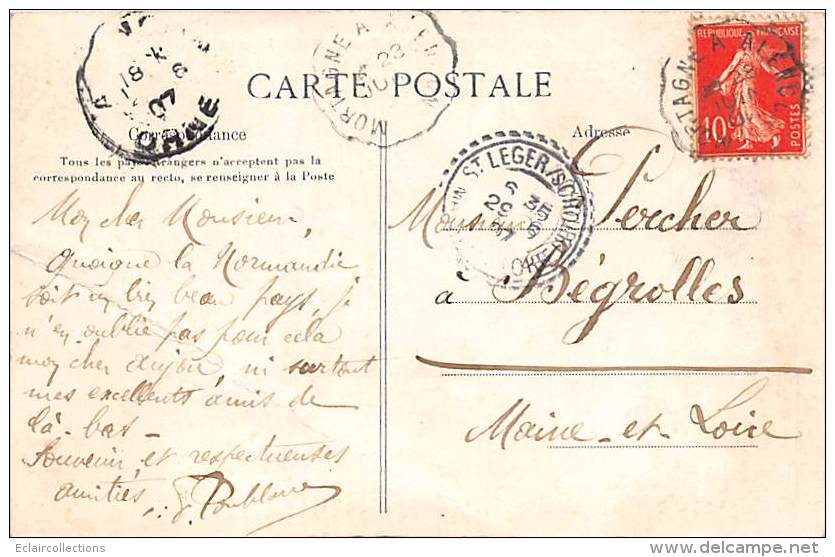 CARTE POSTALE
Correspondance
Tous les pays étrangers n'acceptent pas la
correspondance au recto, se renseigner à la Poste
Adresse
Mon cher Monsieur,
Quoique la Normandie
soit un bien beau pays, je
n'en oublie pas pour cela
mon cher Anjou, ni surtout
mes excellents amis de
là-bas -
Souvenir et respectueuses
amitiés
Monsieur Percher
à Bégrolles
Maine-et-Loire
REPUBLIQUE FRANÇAISE
10
POSTES
MORTAGNE A ALENÇON
ORNE
07
ST LEGER
Eclaircollections
delcampe.net